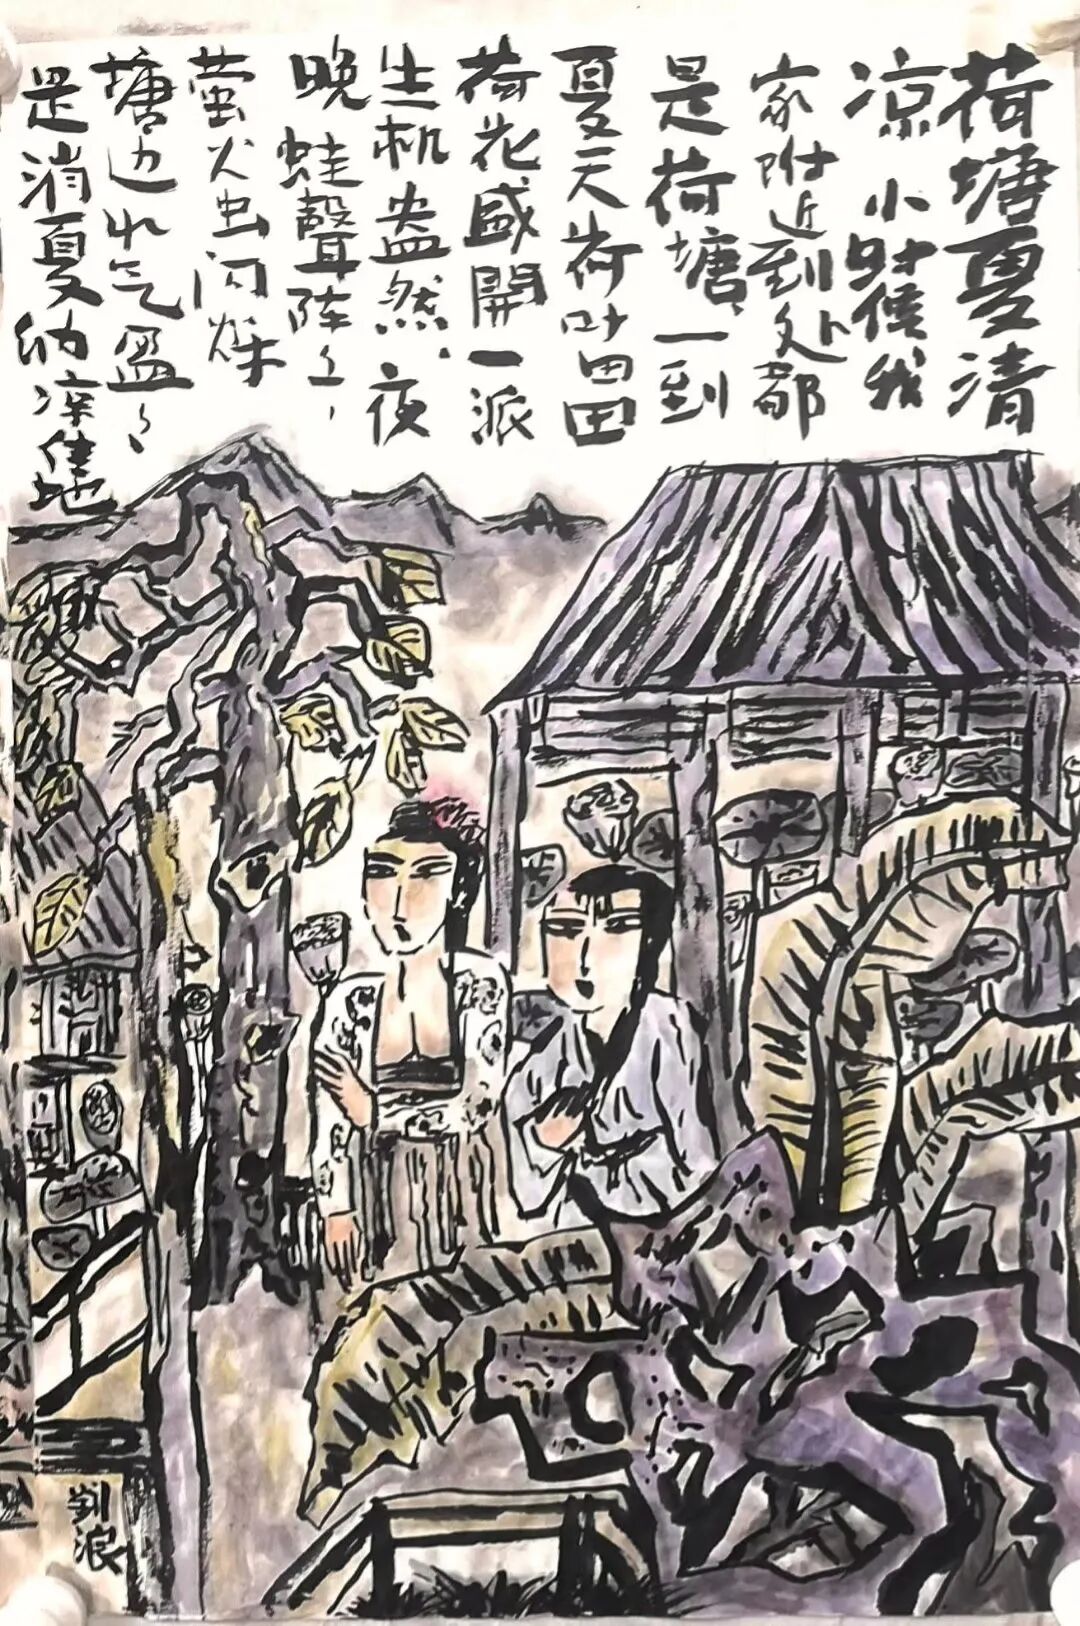 荷塘夏清
凉 小时候我
家附近到处都
是荷塘、一到
夏天荷叶田田
荷花盛開一派
生机盎然、夜
晚蛙聲阵〻、
萤火虫闪烁
塘边水气盈〻、
是消夏纳凉佳地
刘浪